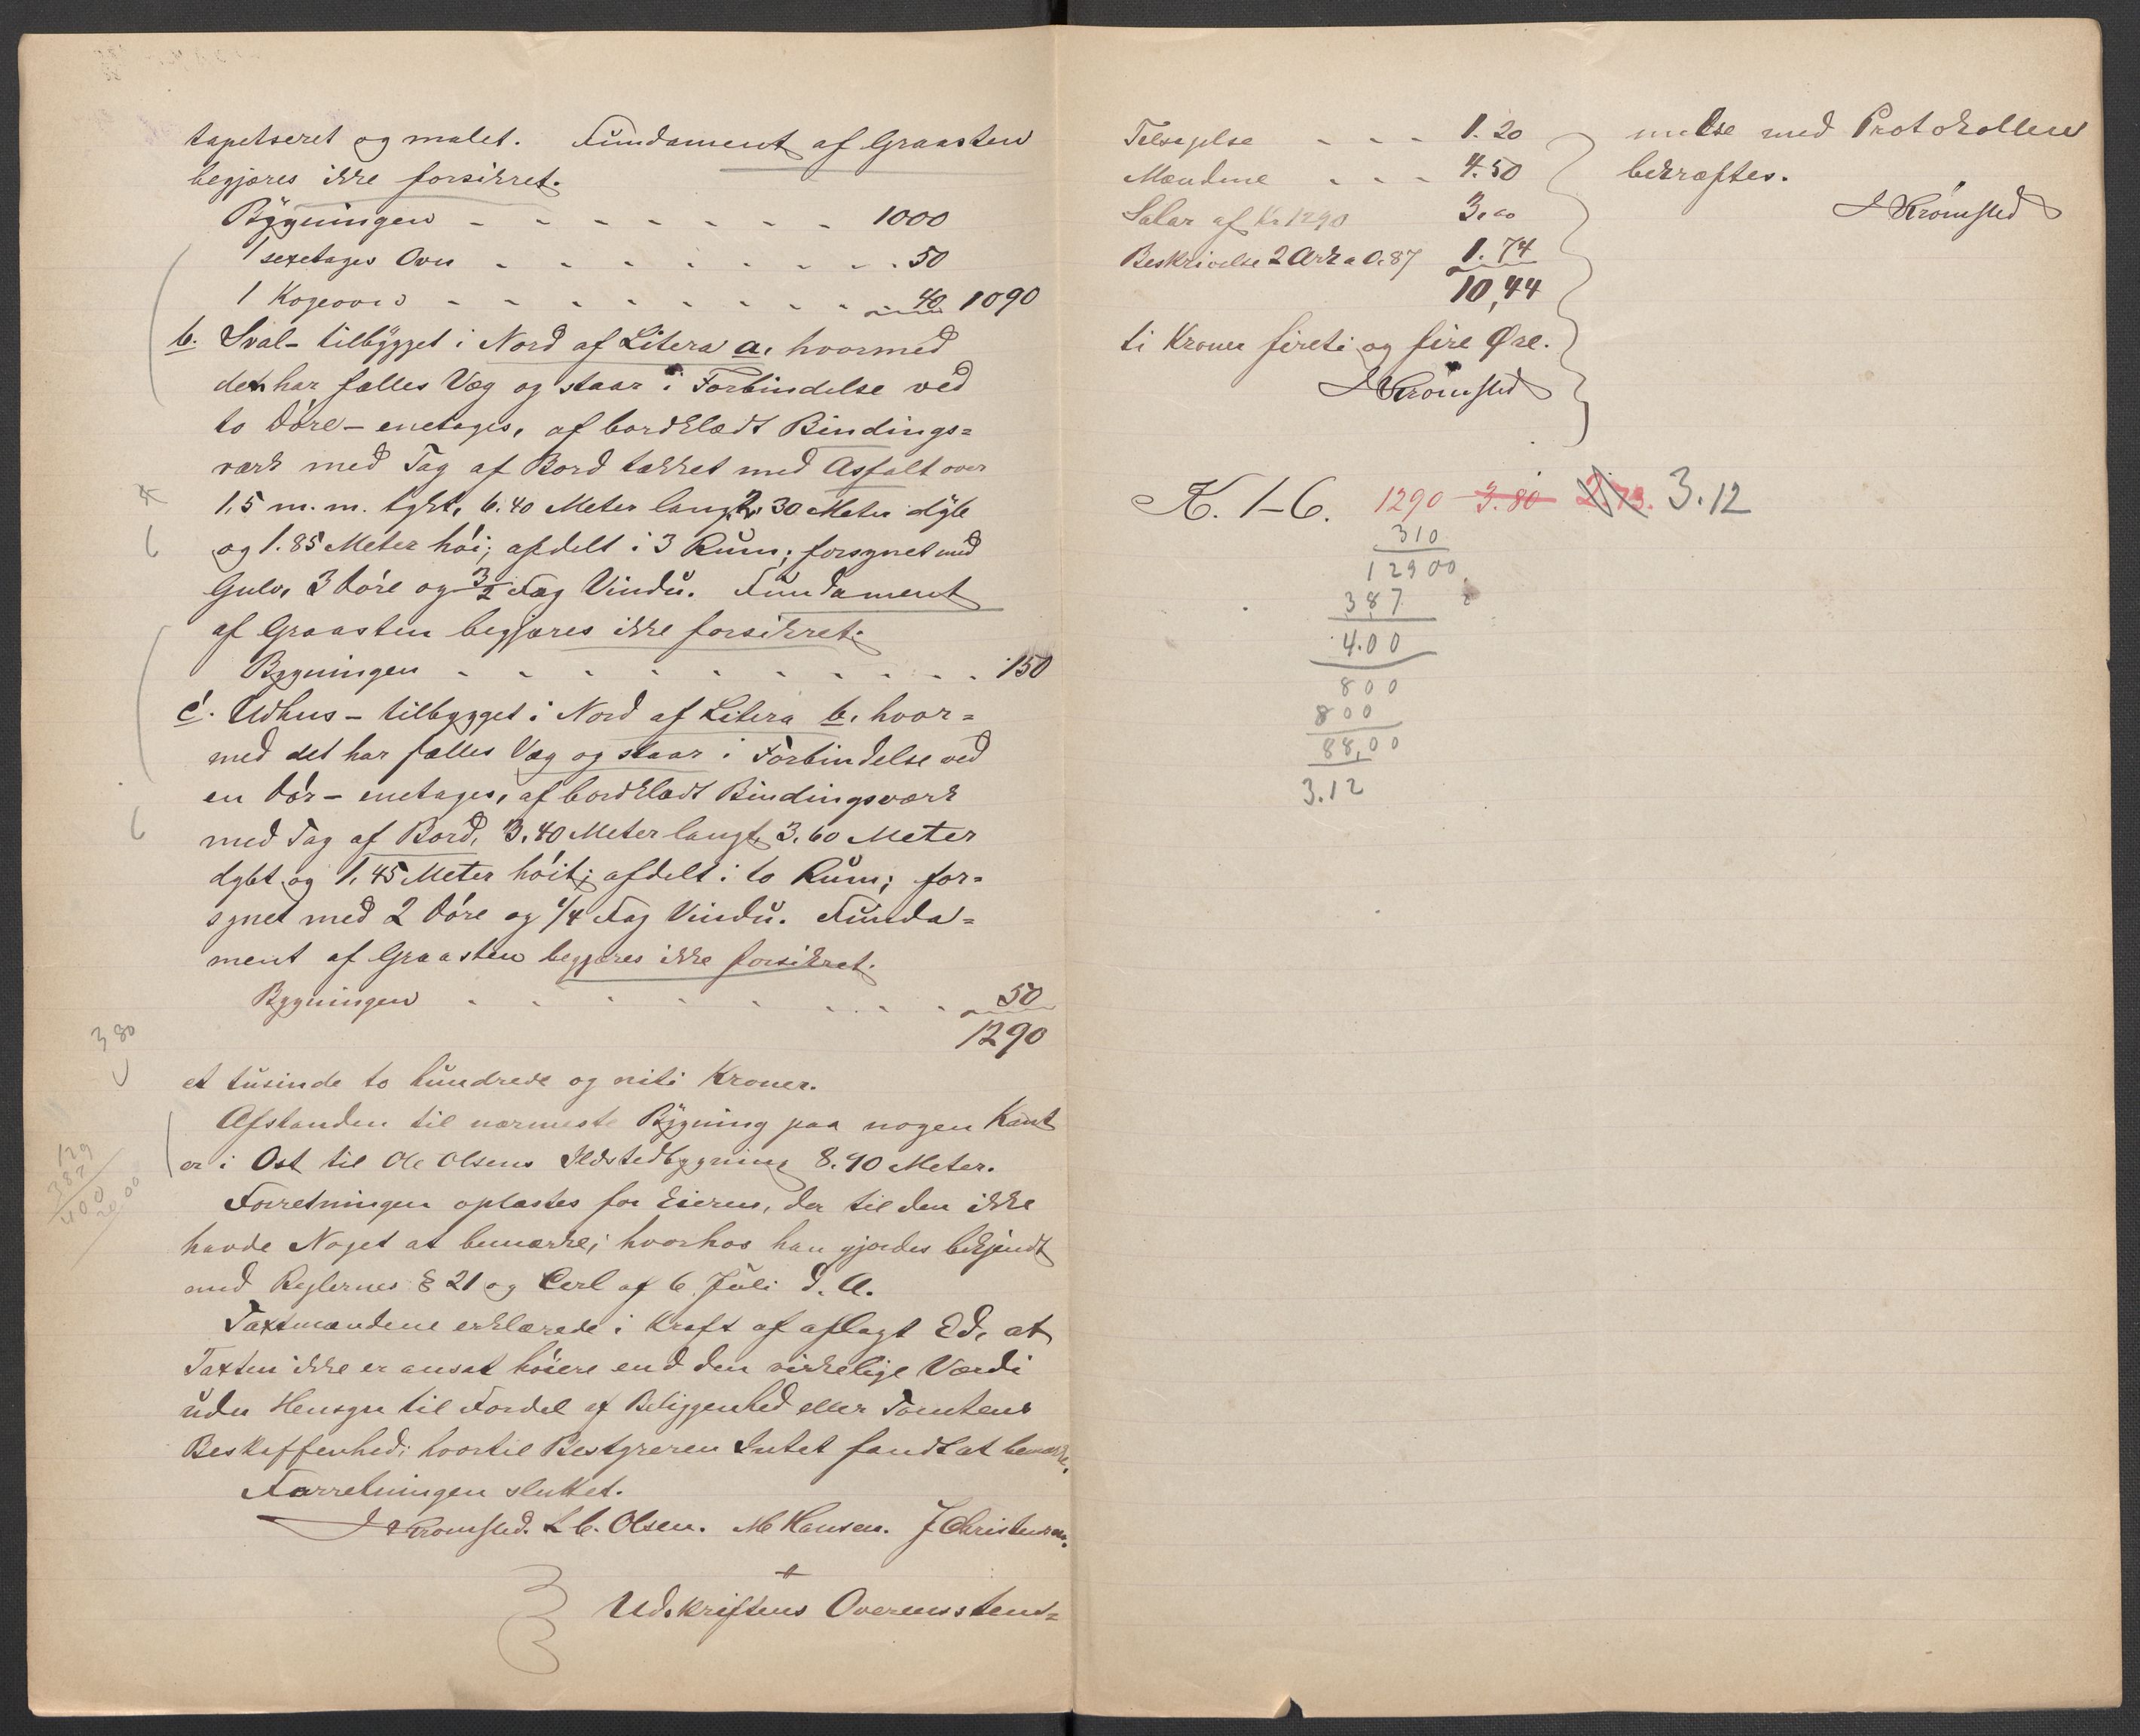 tapetseret og malet. Fundament af Graasten
begjæres ikke forsikret.
Bygningen - - - - - - - 1000
1 sexetages Ovn - - - - - - - 50
1 Kogeovn - - - - - - - 40 1090
b. Sval - tilbygget i Nord af Litera a, hvormed
det har fælles Væg og staar i Forbindelse ved
to Döre - enetages, af bordklædt Bindings=
værk med Tag af Bord tækket med Asfalt over
1,5 m.m. tykt, 6.40 Meter langt, 2.30 Meter dybt
og 1.85 Meter höi; afdelt i 3 Rum; forsynet med
Gulv, 3 Döre og 3/2 Fag Vindu. Fundament
af Graasten begjæres ikke forsikret.
Bygningen - - - - - - - - - 150
c. Udhus - tilbygget i Nord af Litera b, hvor=
med det har fælles Væg og staar i Forbindelse ved
en Dör - enetages, af bordklædt Bindingsværk
med Tag af Bord, 3.40 Meter langt, 3.60 Meter
dybt og 1.45 Meter höit; afdelt i to Rum; for=
synet med 2 Döre og 1/4 Fag Vindu. Funda=
ment af Graasten begjæres ikke forsikret.
Bygningen - - - - - - - - 50
1290
3 80
et tusinde to hundrede og niti Kroner.
Afstanden til nærmeste Bygning paa nogen Kant
er i Ost til Ole Olsens Ildstedbygning 8.90 Meter.
129
387
400
Forretningen oplæstes for Eieren, der til den ikke
havde Noget at bemærke; hvorhos han gjordes bekjendt
med Reglernes § 21 og Cerl af 6 Juli d. A.
Taxtmændene erklærede i Kraft af aflagt Ed, at
Taxten ikke er ansat höiere end den virkelige Værdi
uden Hensyn til Fordel af Beliggenhed eller Tomtens
Beskaffenhed; hvortil Bestyreren Intet fandt at bemærke.
Forretningen sluttet.
J Krömsted. L C. Olsen. M Hansen. J Christensen.
Udskriftens Overensstem=
Tilsigelse - - - 1.20
Mændene - - - 4.50
Salær af Kr 1290 3,00
Beskrivelse 2 Ark a 0.87 1.74
10,44
ti Kroner fireti og fire Øre.
J Krömsted
melse med Protokollen
bekræftes.
J Krömsted
K. 1-6. 1290 3.80 2.73. 3.12
310
12900
387
4.00
800
800
88,00
3.12